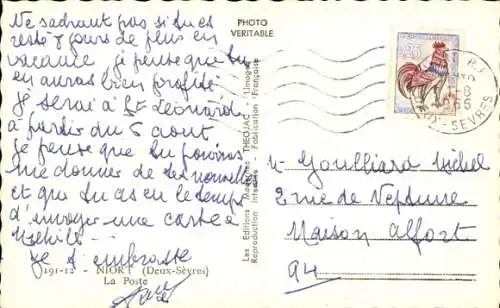 Ne sachant pas si tu es
resté 8 jours de plus en
vacance je pense que tu
en auras bien profité
je serai à St Léonard
à partir du 5 aout
je pense que tu pourras
me donner de tes nouvelles
et que tu as eu le temps
d'envoyer une carte à
je t'embrasse
191-12 - NIORT (Deux-Sèvres)
La Poste
PHOTO
VERITABLE
Les Editions Modernes THEOJAC - Limoges
Reproduction Interdite - Fabrication Française
0,25
8
1966
DEUX-SEVRES
Mr Goulliard Michel
2 rue de Neptune
Maison Alfort
94